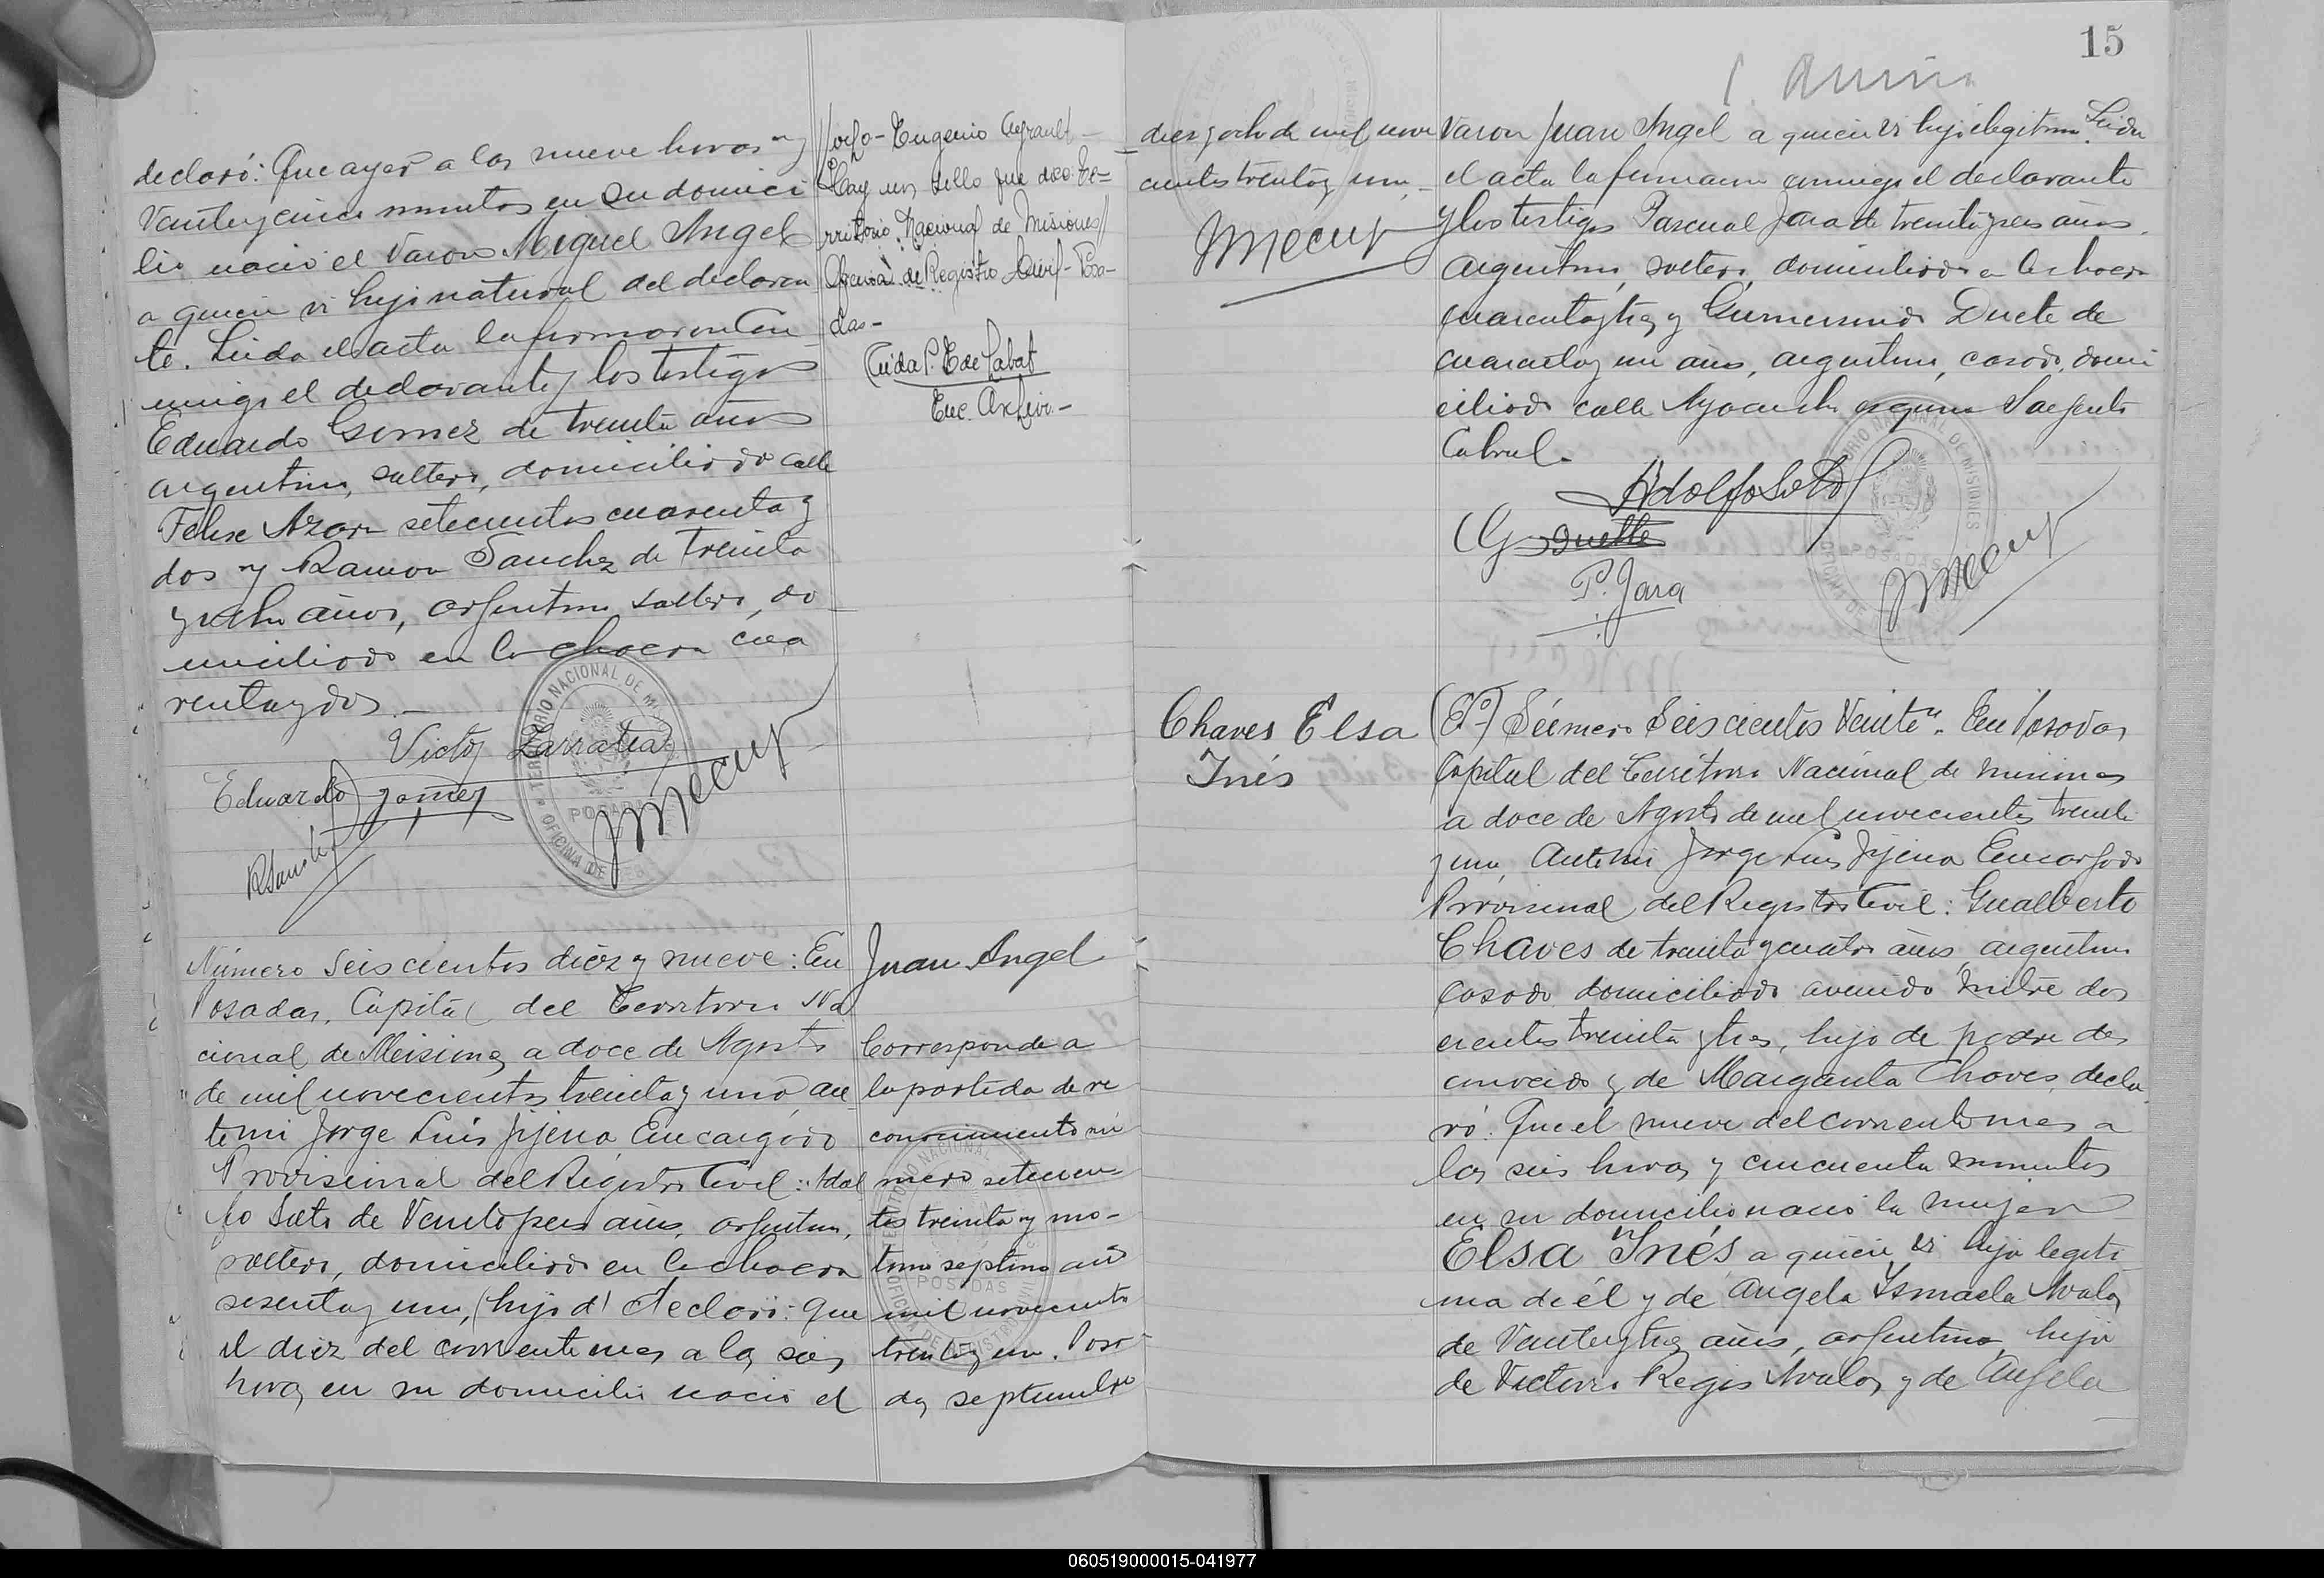 declaró: Que ayer a las nueve horas y
Veinteycinco minutos en su domici
lio nació el Varon Miguel Angel
a quien vi hijo natural del declaran
te. Leida el acta la firmaron con
migo el declarante y los testigos
Eduardo Gomez de treinta años
argentino, soltero, domiciliado calle
Felix Azara setecientos cuarenta y
dos y Ramon Sanchez de treinta
y ocho años, argentino soltero, do
miciliado en la chacra cua
rentaydos.—
Victor Zarratea
Eduardo Gomez
RSanchez
TERRITORIO NACIONAL DE MISIONES
POSADAS
Número Seiscientos diez y nueve: En
Posadas, Capital del Territorio Na
cional de Misiones a doce de Agosto
de mil novecientos treinta y uno, an
te mi Jorge Luis Jijena, Encargado
Provisional del Registro Civil: Adol
fo Soto de Veintiseis años, argentino,
soltero, domiciliado en la chacra
sesenta y uno, (hijo d) declaró: Que
el diez del corriente mes a las seis
horas en su domicilio nació el
Eugenio
Hay un sello que dice: Te=
rritorio Nacional de Misiones//
Oficina de Registro Civil- Posa-
das-
Enc. Archivo-
Juan Angel
Corresponde a
la partida de re
conocimiento nú
mero setecien
tos treinta y
tomo septimo año
mil novecientos
treinta y uno. Posa
das septiembre
diez y ocho de mil nove
cientos treinta y uno.-
15
Varon Juan Angel a quien vi hijo ilegitimo. Leida
el acta la firmaron conmigo el declarante
y los testigos Pascual Jara de treinta y seis años
argentino, soltero, domiciliado en la chacra
cuarentaytres y Gumersindo Duete de
cuarenta y un años, argentino, casado, domi
ciliado calle Ayacucho esquina Sargento
Cabral.-
Adolfo Soto
G Duette
P. Jara
TERRITORIO NACIONAL DE MISIONES
POSADAS
Chaves Elsa
Inés
Número Seiscientos Veinte.. En Posadas
Capital del Territorio Nacional de Misiones
a doce de Agosto de mil novecientos treinta
y uno, Ante mi Jorge Luis Jijena Encargado
Provisional del Registro Civil: Gualberto
Chaves de treinta y cuatro años argentino
casado domiciliado avenida Mitre dos
cientos treinta y tres, hijo de padre des
conocido y de Margarita Chaves, decla
ró: Que el nueve del corriente mes a
las seis horas y cincuenta minutos
en su domicilio nació la mujer
Elsa Inés a quien vi hija legiti
ma de él y de Angela Ismaela Avalos
de Veinteytres años, argentina, hija
de Victorio Regis Avalos y de Angela
060519000015-041977